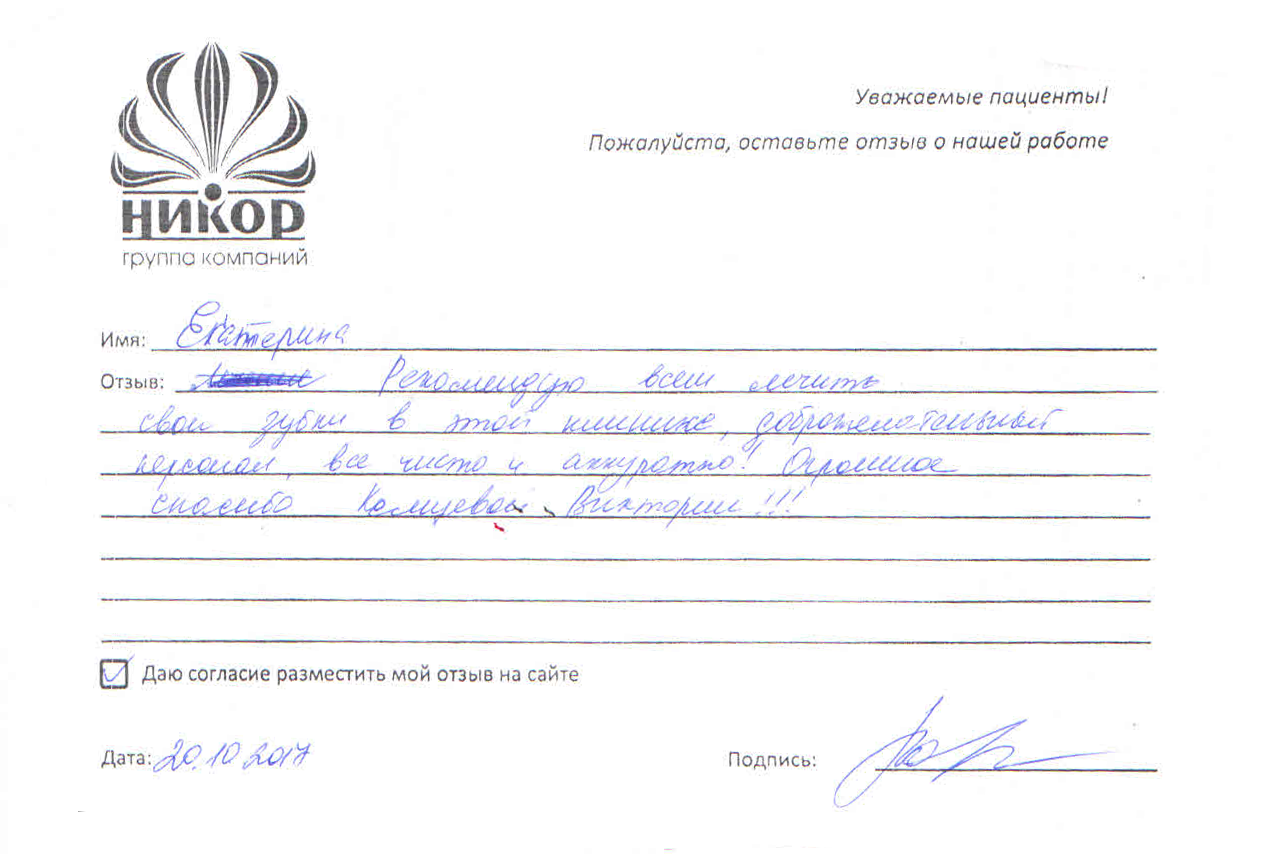 НИКОР
группа компаний
Уважаемые пациенты!
Пожалуйста, оставьте отзыв о нашей работе
Имя: Екатерина
Отзыв: Рекомендую всем лечить
свои зубки в этой клинике, доброжелательный
персонал, все чисто и аккуратно! Огромное
спасибо Виктории!!!
Даю согласие разместить мой отзыв на сайте
Дата: 20.10 2017
Подпись: